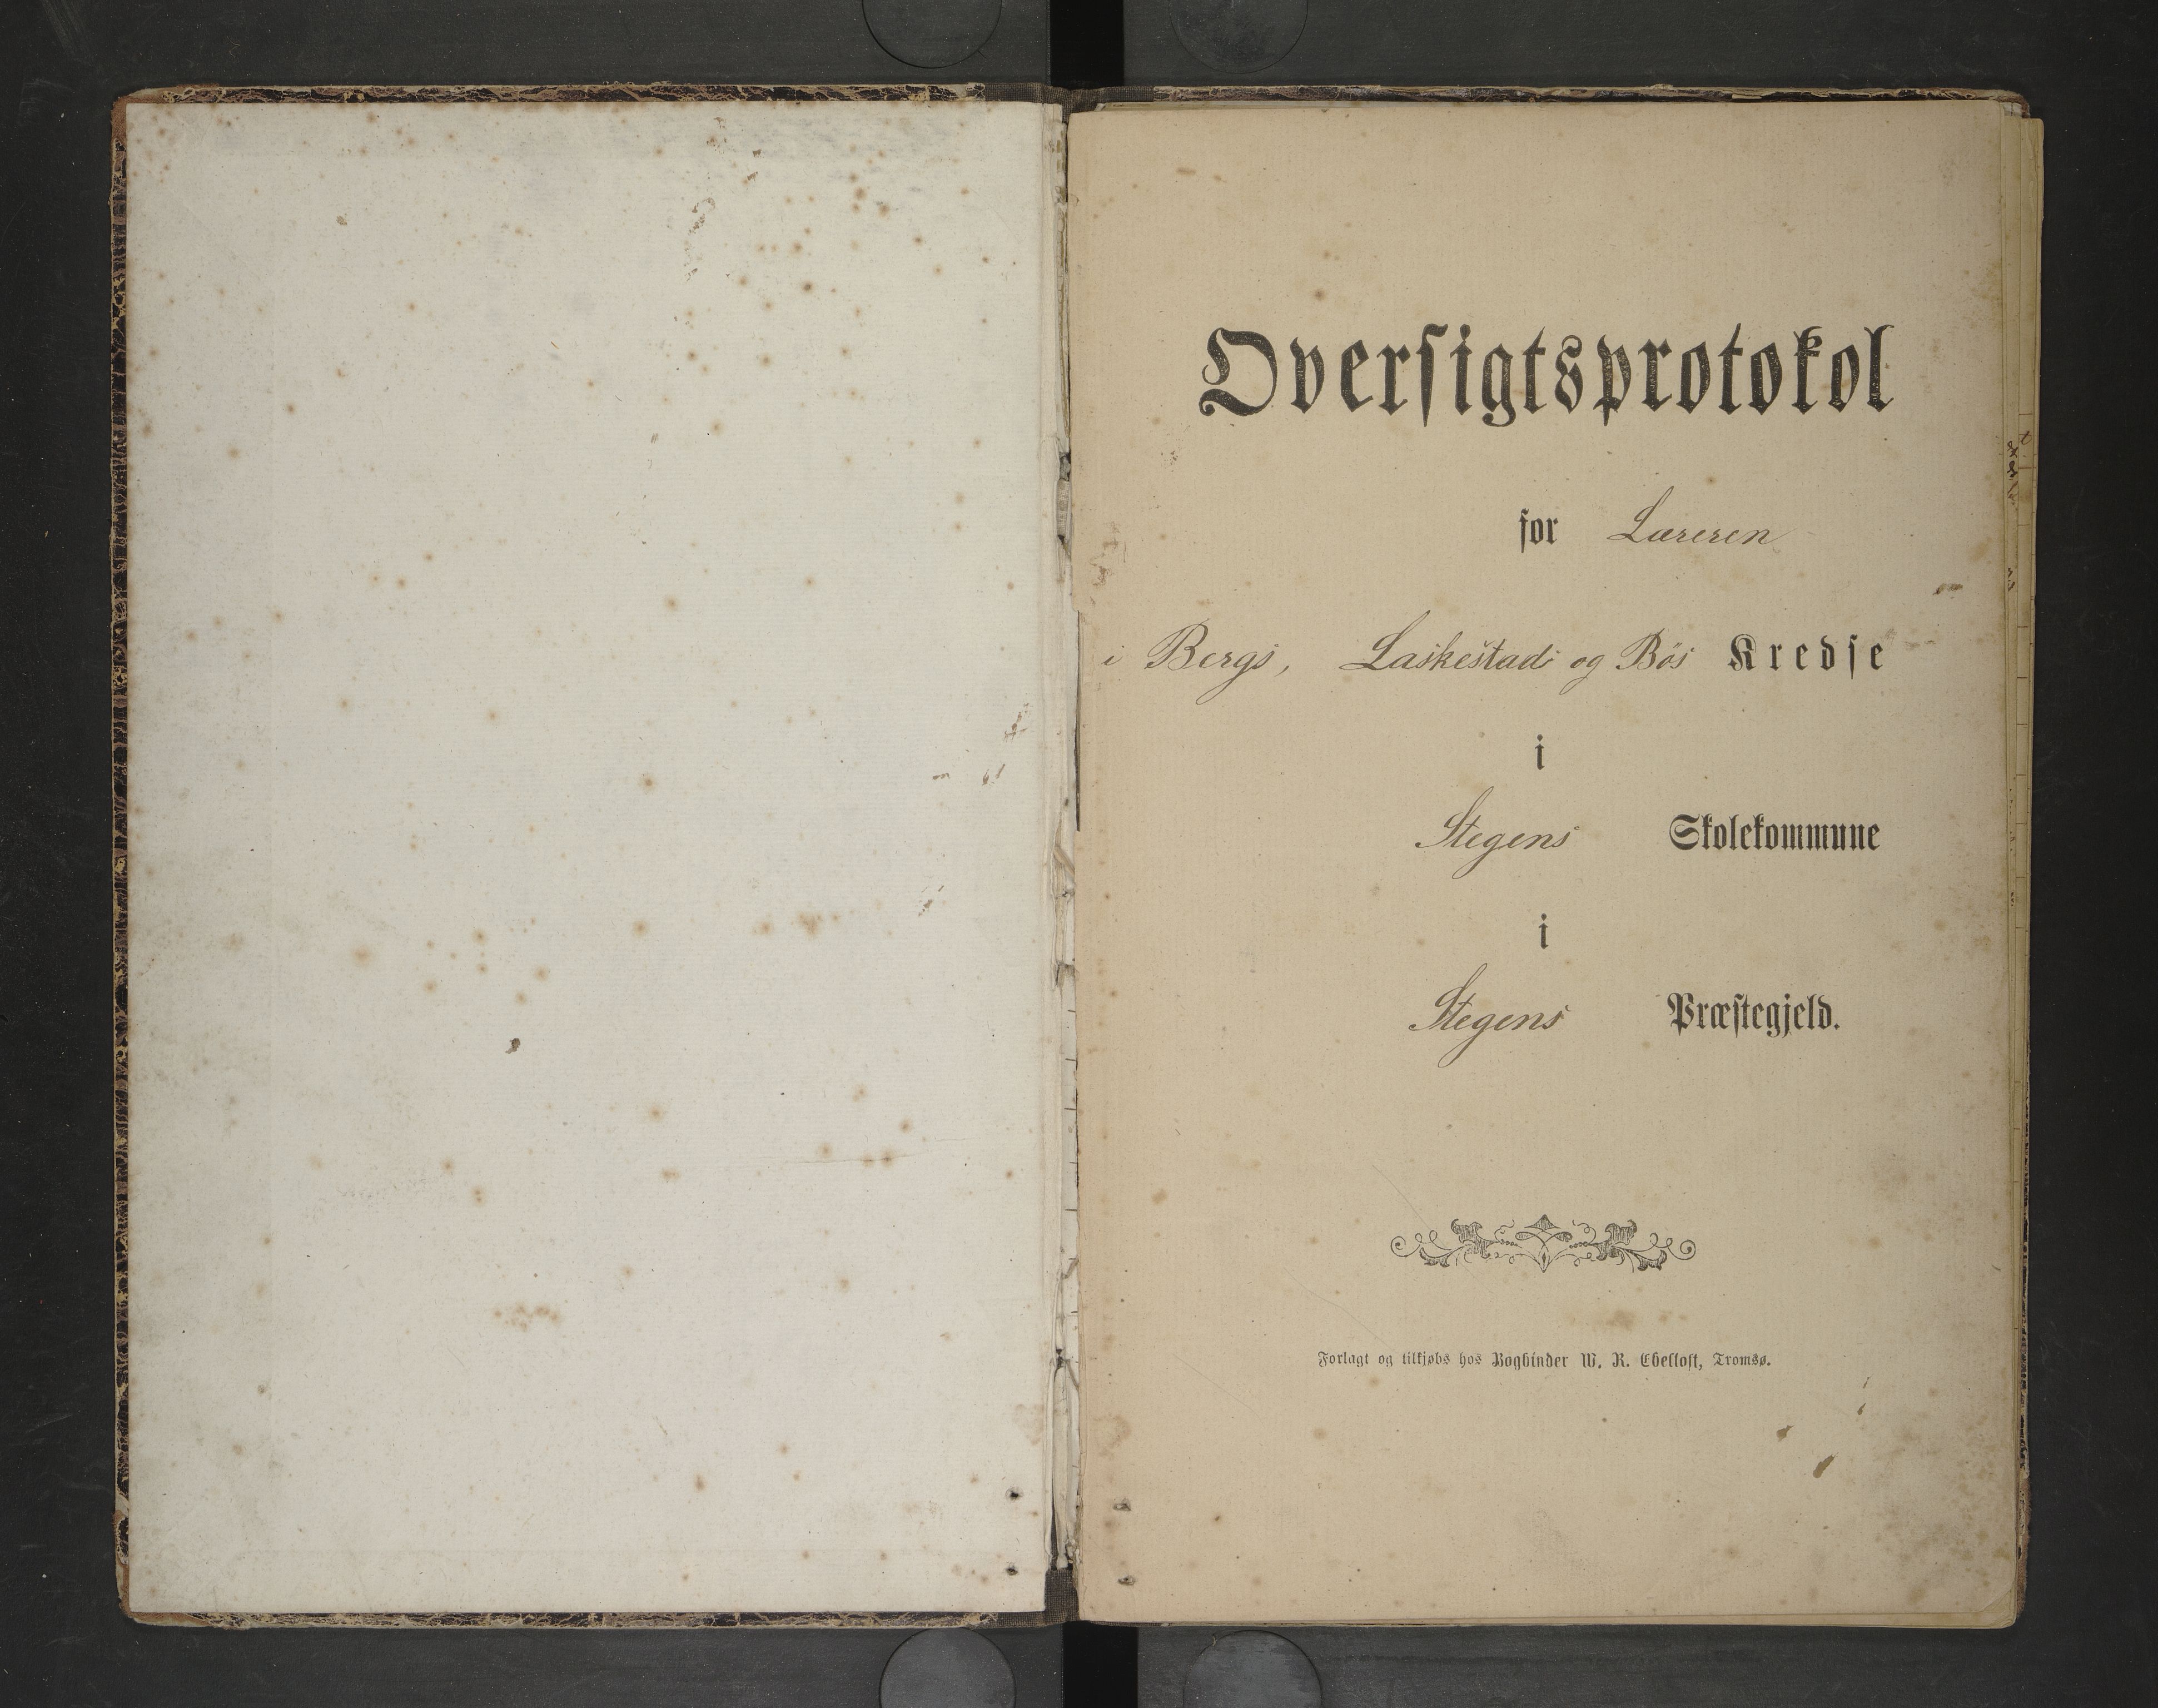 Oversigtsprotokol
for Læreren
i Bergs, Laskestads og Bös Kredse
i
Stegens Skolekommune
i
Stegens Præstegjeld.
Forlagt og tilkjøbs hos Bogbinder W. R. Ebeltoft, Tromsø.